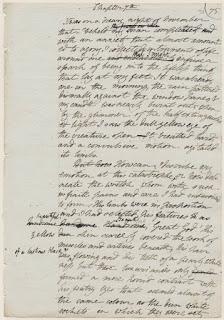 Chapter 7th
75
It was on a dreary night of November
that I beheld my man completed and
with an anxiety that almost amount
ed to agony I collected instruments of life
around me and endeavour to infuse a
spark of being into the lifeless thing
that lay at my feet. It was already
one in the morning, the rain pattered
dismally against the window panes &
my candle was nearly burnt out, when
by the glimmer of the half extinguish
ed light I saw the dull yellow eye of
the creature open. It breathed hard,
and a convulsive motion agitated
its limbs.
But how How can I describe my
emotion at this catastrophe; or how deli
neate the wretch whom with such
infinite pains and care I had endeavoured
to form. His limbs were in proportion
and I had selected his features as
handsome Handsome Great God! His
yellow dun skin scarcely covered the work of
muscles and arteries beneath; his hair
of a lustrous black &
flowing and his teeth of a pearly white
ness but these luxuriances only
formed a more horrid contrast with
his watry eyes that seemed almost of
the same colour as the dun white
sockets in which they were set,